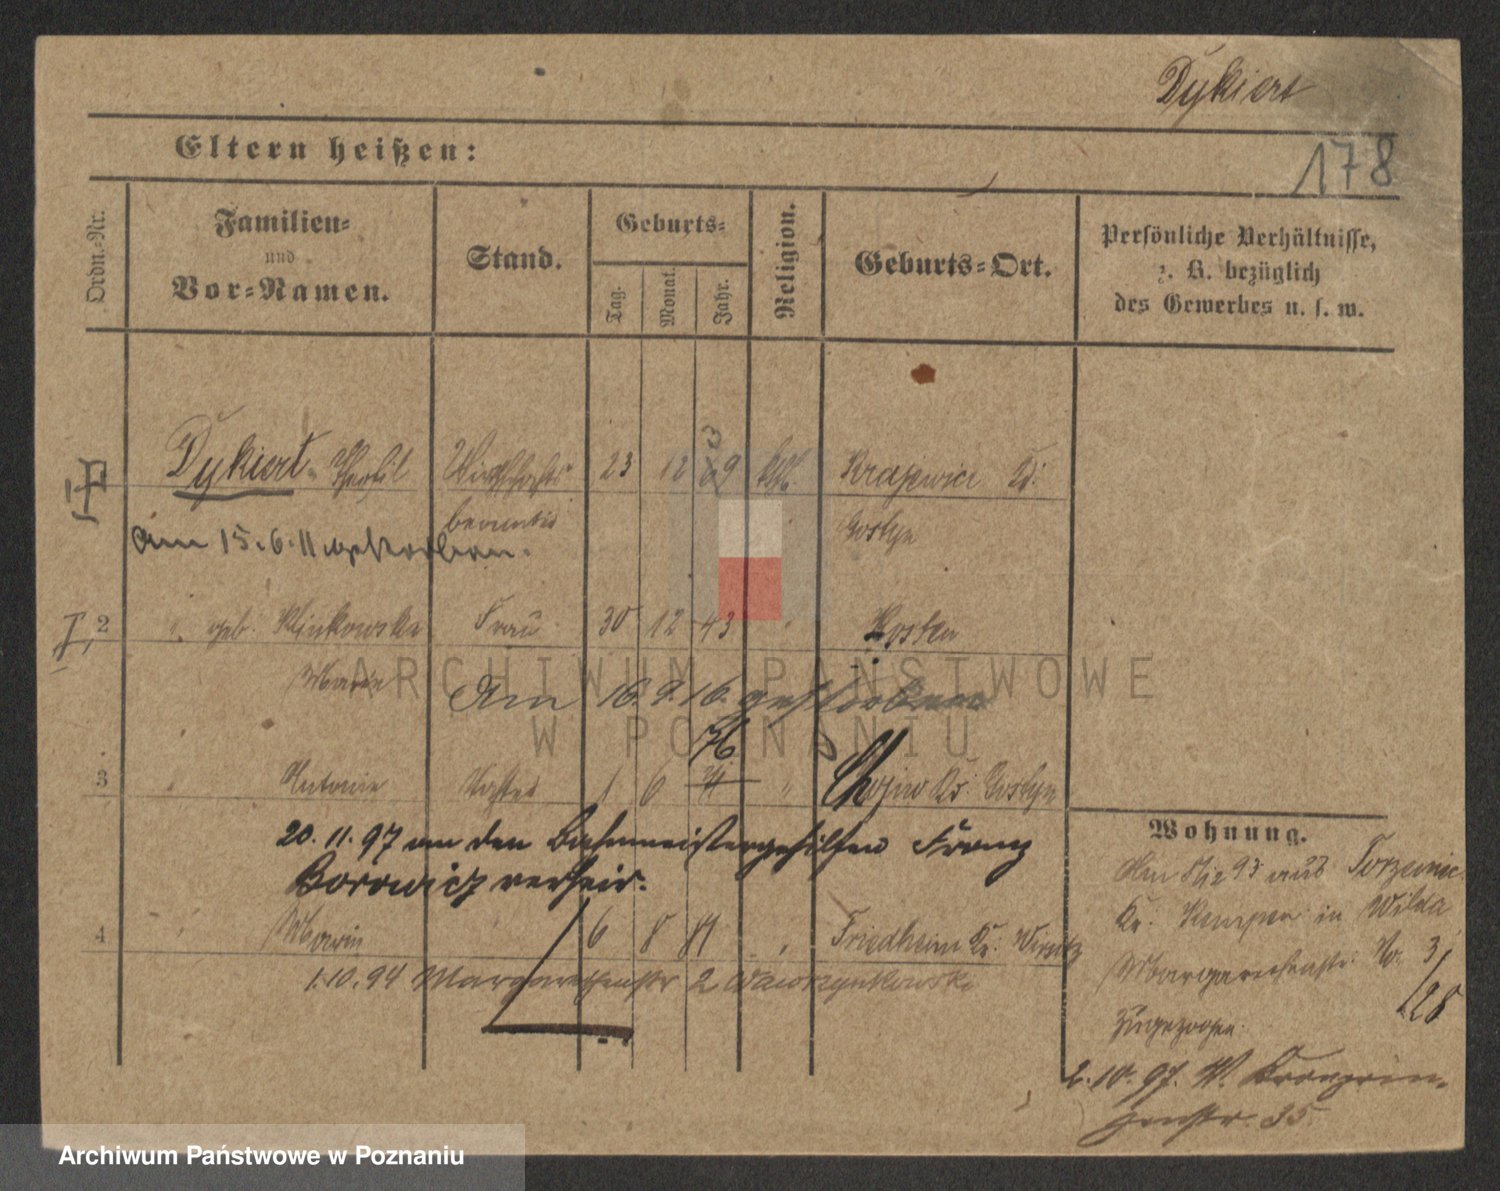 Dykiert
178
Eltern heißen:
Ordn.-Nr.
Familien-
und
Vor-Namen.
Stand.
Geburts-
Tag.
Monat.
Jahr.
Religion.
Geburts-Ort.
Persönliche Verhältnisse,
z. B. bezüglich
des Gewerbes u. s. w.
Dykiert Theofil Wirthschafts- 23 12 69 kath. Krajewice Kr:
beamter Gostyn
Am 15.6.11 gestorben.
2 " geb: Klinkowska Frau 30 12 43 "
Marie
Am 16.9.16. gestorben
76
3 " Antonie Tochter 1 6 " Chojno Kr: Gostyn
20.11.97 an den Bahnmeistergehilfen Franz
Borowicz verheir.
4 " Marie 6 8 81 " Friedheim Kr: Wirsitz
1.10.94 Margarethenstr 2 Wawrzynkowski
Wohnung.
Am 93 aus
Kr: Kempen in Wilda
Margarethenstr: No. 3
/28
Zugezogen.
2.10.97. W. Kronprin-
zenstr. 35
ARCHIWUM PAŃSTWOWE
W POZNANIU
Archiwum Państwowe w Poznaniu